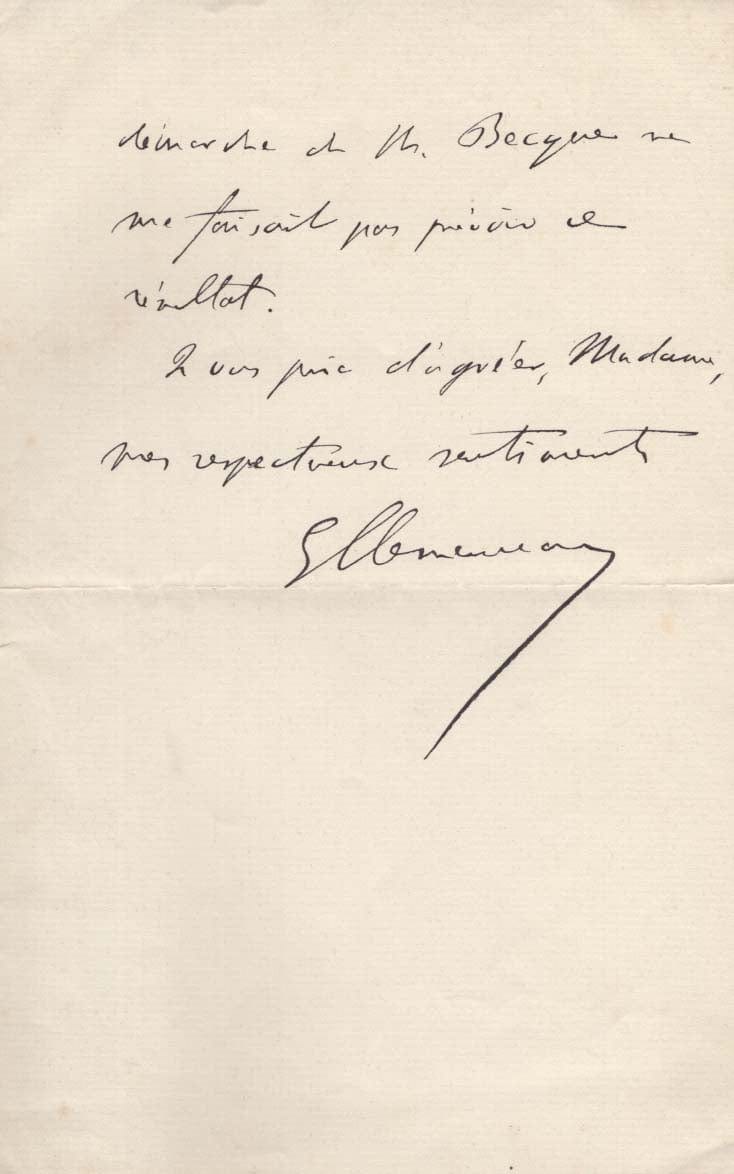 démarche de M. Becque ne
me faisait pas prévoir ce
résultat.
Je vous prie d'agréer, Madame,
mes respectueux sentiments
GClemenceau